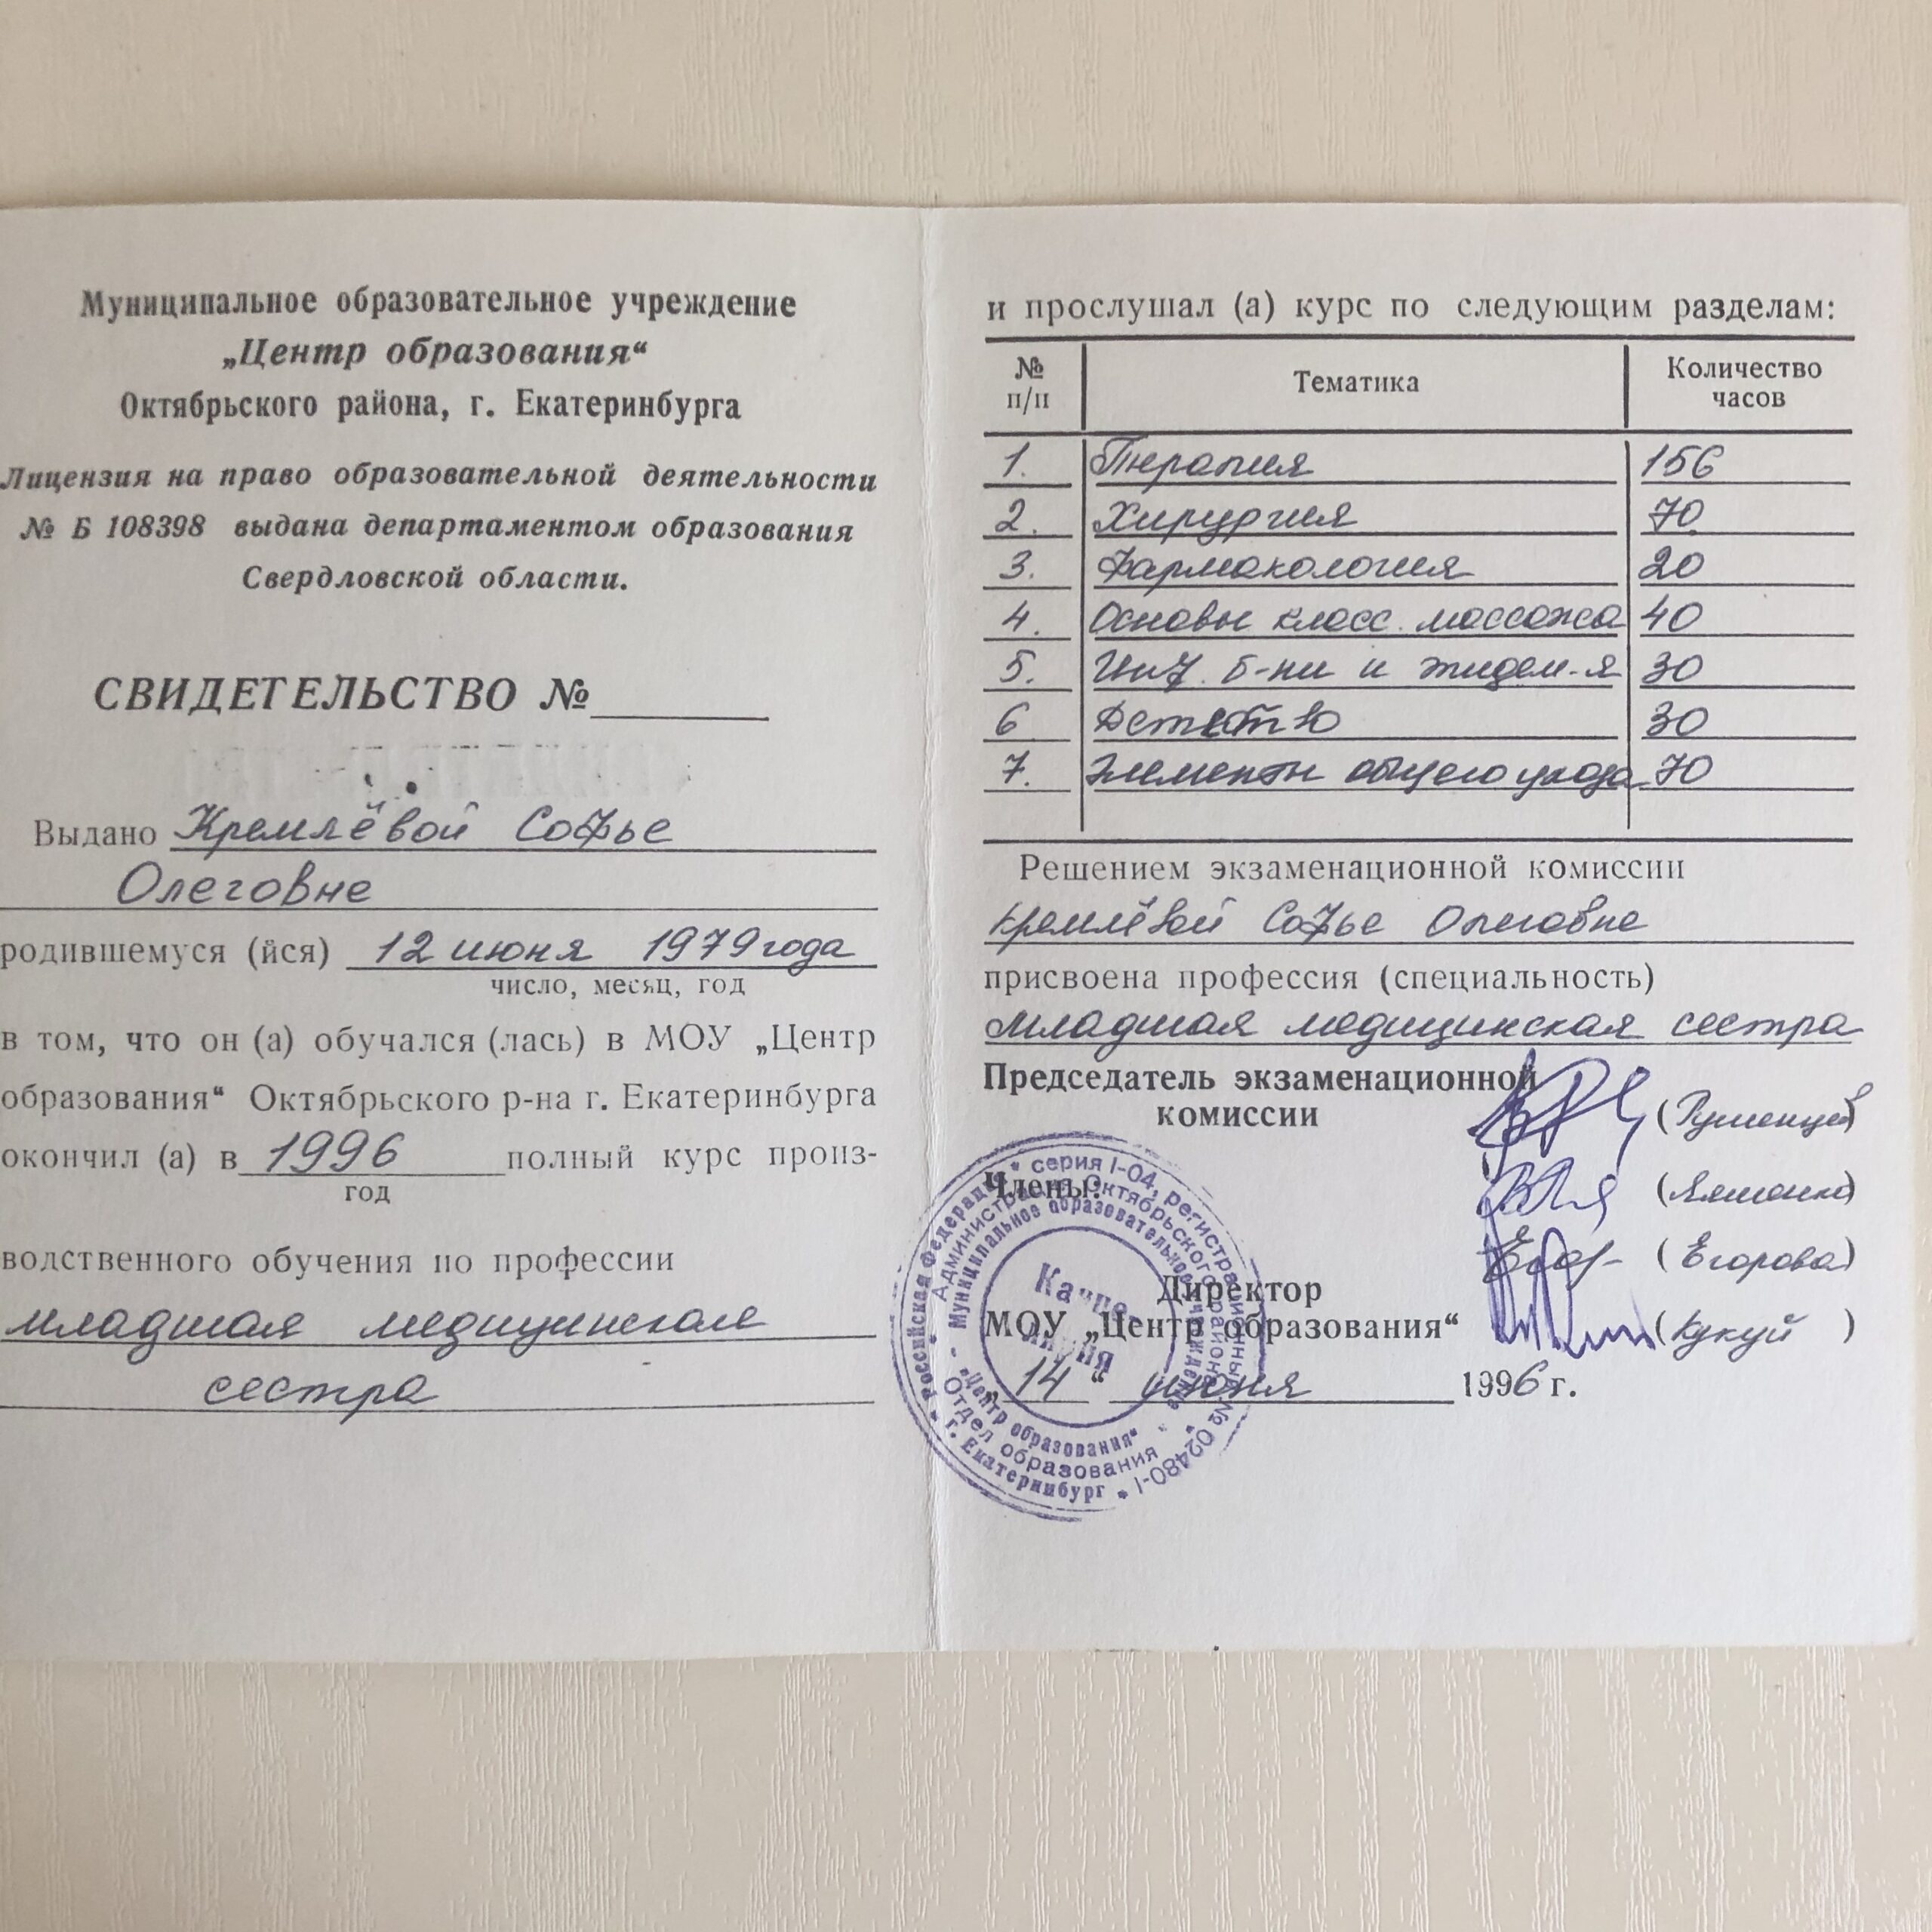 Муниципальное образовательное учреждение
„Центр образования“
Октябрьского района, г. Екатеринбурга
Лицензия на право образовательной деятельности
№ Б 108398 выдана департаментом образования
Свердловской области.
СВИДЕТЕЛЬСТВО №
Выдано Кремлёвой Софье
Олеговне
родившемуся (йся) 12 июня 1979 года
число, месяц, год
в том, что он (а) обучался (лась) в МОУ „Центр
образования“ Октябрьского р-на г. Екатеринбурга
окончил (а) в 1996 полный курс произ-
год
водственного обучения по профессии
младшая медицинская
сестра
и прослушал (а) курс по следующим разделам:
№ п/п Тематика Количество часов
1. Терапия 156
2. Хирургия 70
3. Фармакология 20
4. Основы класс. массажа 40
5. Инф. б-ни и эпидем-я 30
6 Детство 30
7. Элементы общего ухода 70
Решением экзаменационной комиссии
Кремлёвой Софье Олеговне
присвоена профессия (специальность)
младшая медицинская сестра
Председатель экзаменационной
комиссии (Румянцев)
Члены:
(Егорова)
Директор
МОУ „Центр образования“ (Кукуй)
„14“ июня 1996 г.
* Российская Федерация * серия I-04, регистрационный № 02480-I *
г. Екатеринбург
Администрация Октябрьского района
Отдел образования
Муниципальное образовательное учреждение
„Центр образования“
Канцелярия